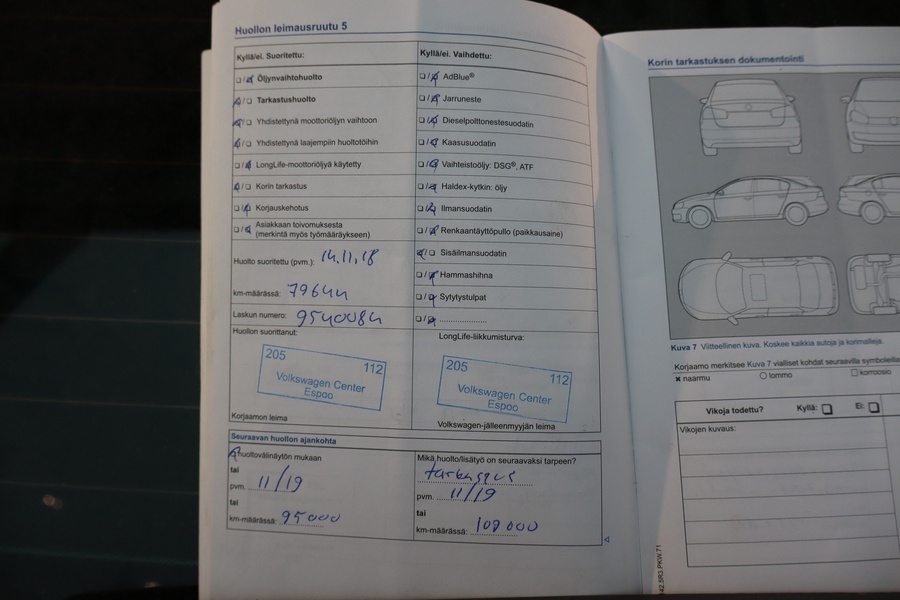 Huollon leimausruutu 5
Kyllä/ei. Suoritettu:
Öljynvaihtohuolto
Tarkastushuolto
Yhdistettynä moottoriöljyn vaihtoon
Yhdistettynä laajempiin huoltotöihin
LongLife-moottoriöljyä käytetty
Korin tarkastus
Korjauskehotus
Asiakkaan toivomuksesta
(merkintä myös työmääräykseen)
Huolto suoritettu (pvm.): 14.11.18
km-määrässä: 79644
Laskun numero: 9540084
Huollon suorittanut:
205 112
Volkswagen Center
Espoo
Korjaamon leima
Kyllä/ei. Vaihdettu:
AdBlue®
Jarruneste
Dieselpolttonestesuodatin
Kaasusuodatin
Vaihteistoöljy: DSG®, ATF
Haldex-kytkin: öljy
Ilmansuodatin
Renkaantäyttöpullo (paikkausaine)
Sisäilmansuodatin
Hammashihna
Sytytystulpat
LongLife-liikkumisturva:
205 112
Volkswagen Center
Espoo
Volkswagen-jälleenmyyjän leima
Seuraavan huollon ajankohta
huoltovälinäytön mukaan
tai
pvm. 11/19
tai
km-määrässä: 95000
Mikä huolto/lisätyö on seuraavaksi tarpeen?
tarkastus
pvm. 11/19
tai
km-määrässä: 109000
Korin tarkastuksen dokumentointi
Kuva 7 Viitteellinen kuva. Koskee kaikkia autoja ja korimalleja.
Korjaamo merkitsee Kuva 7 vialliset kohdat seuraavilla symboleilla
naarmu lommo korroosio
Vikoja todettu? Kyllä: Ei:
Vikojen kuvaus:
42.5R3.PKW.71